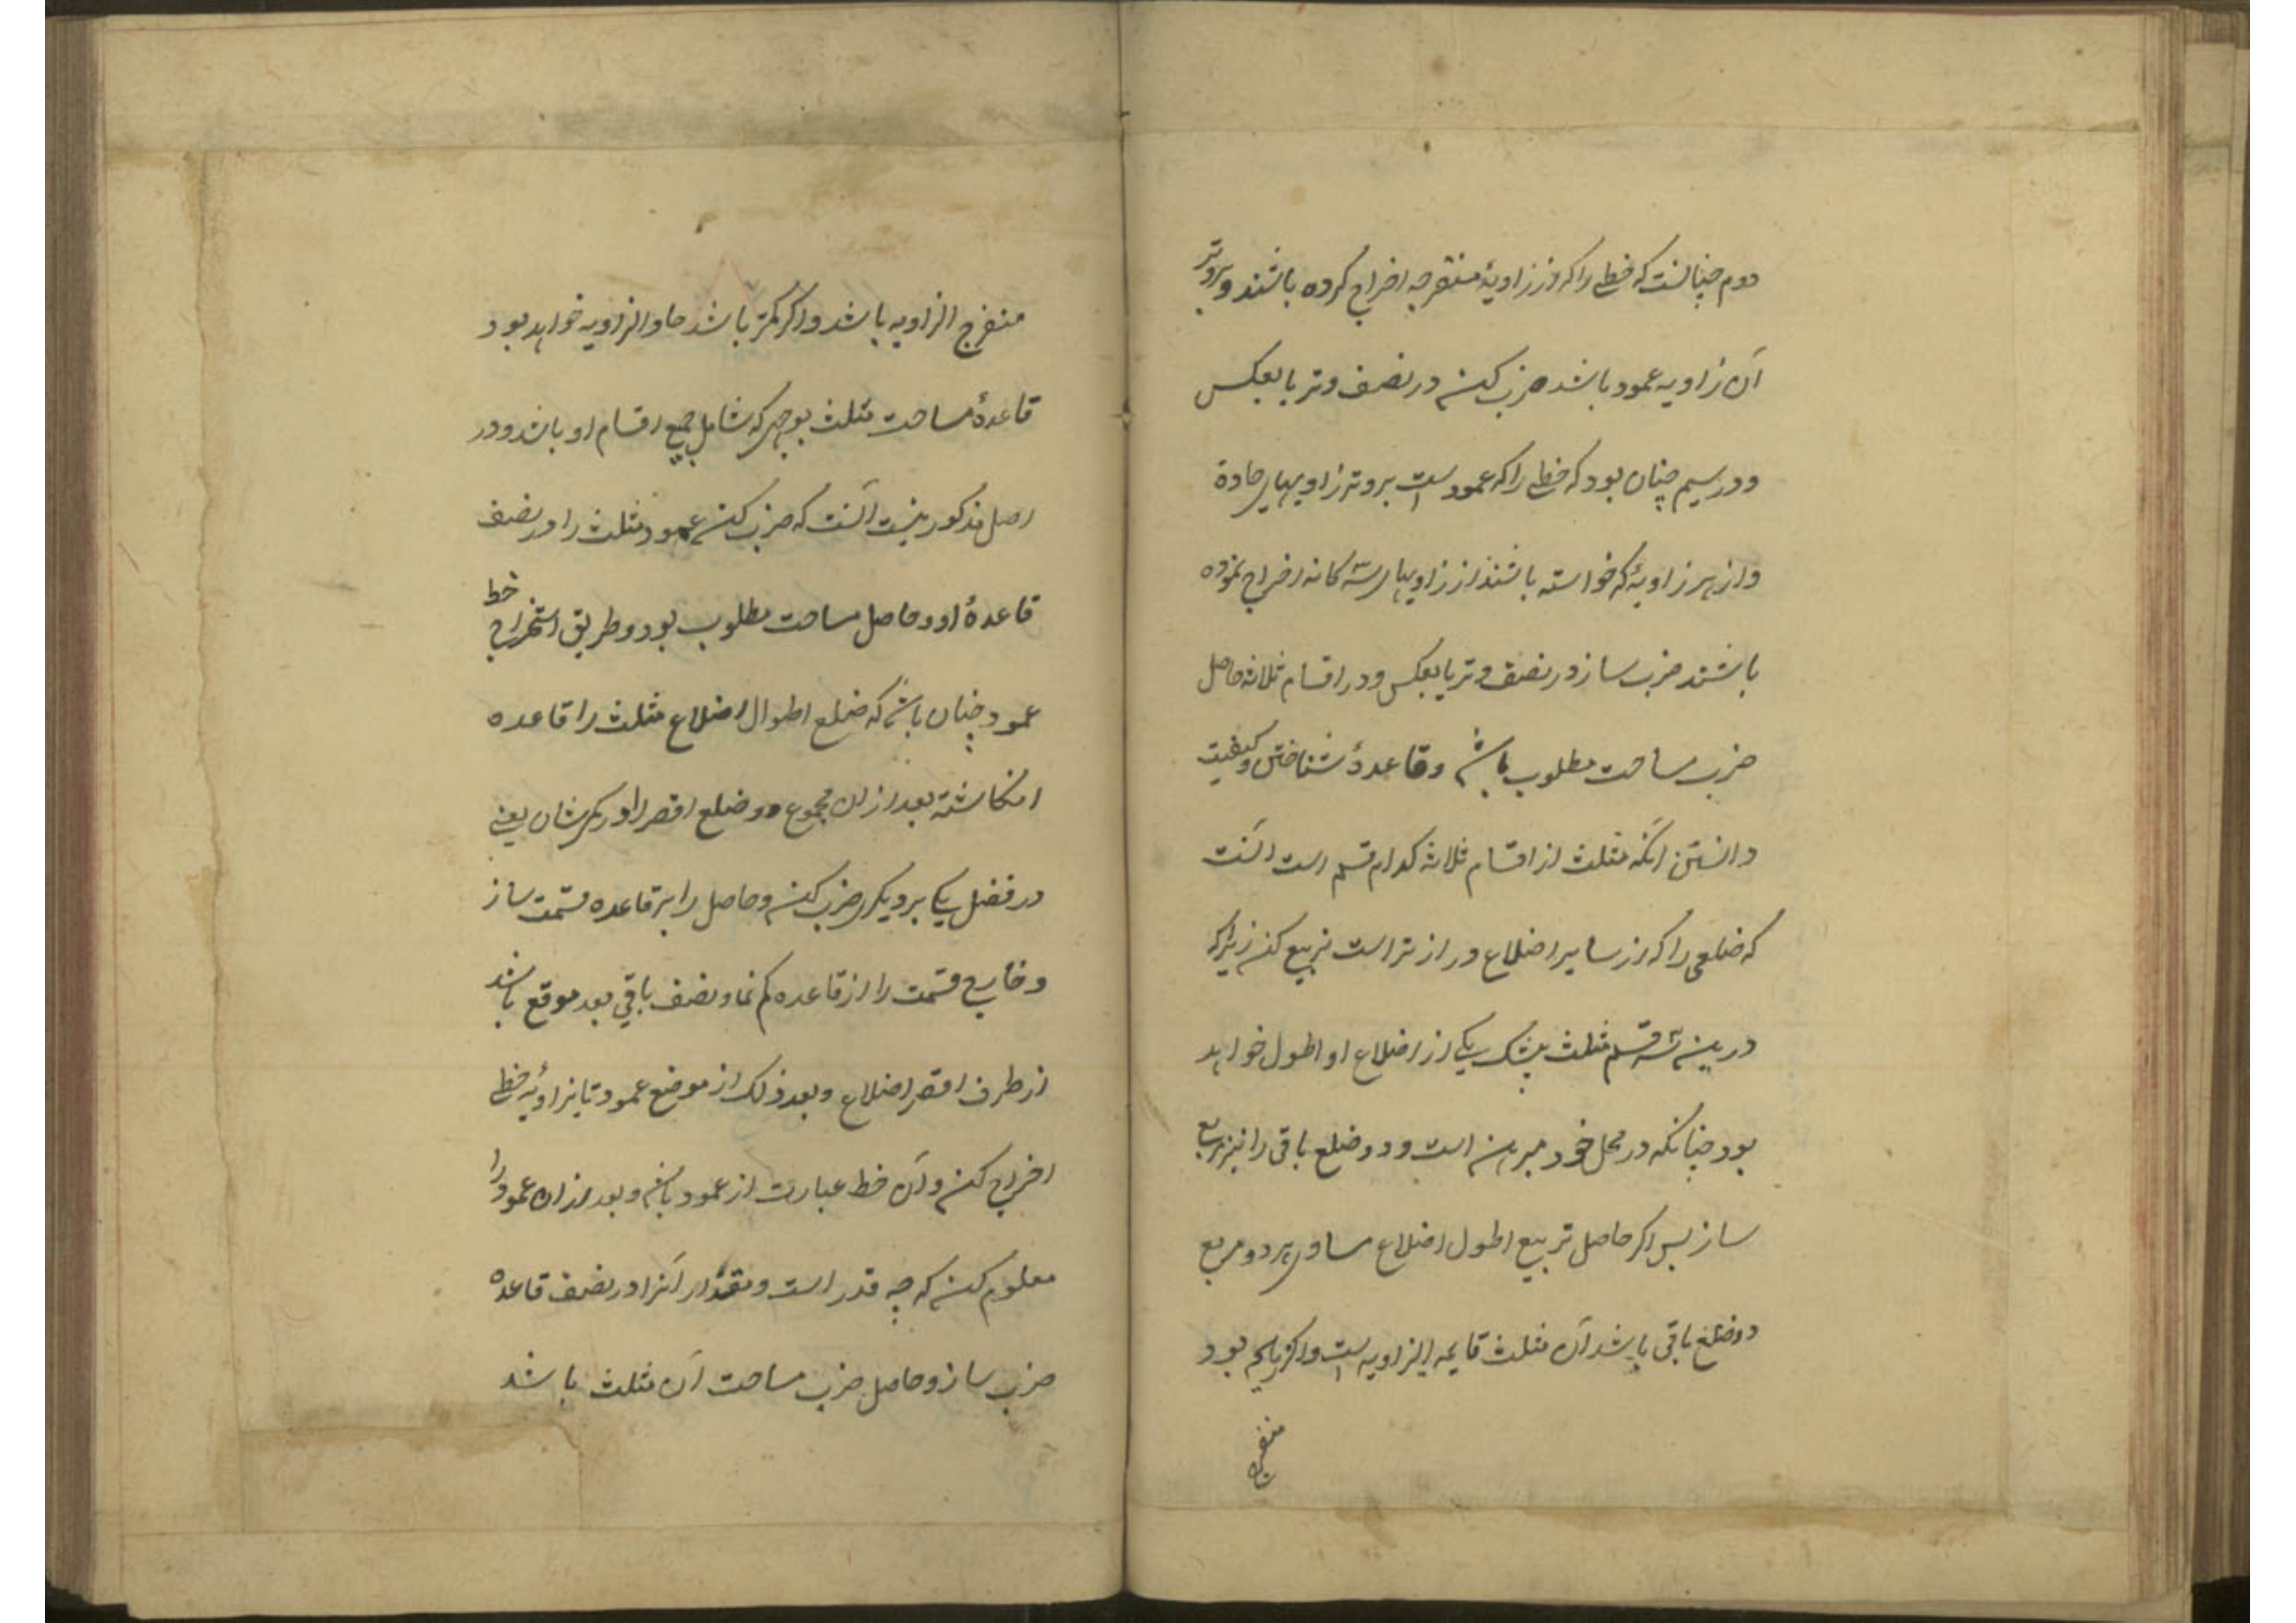 دوم چنانست که خطی را که از زاویهٔ منفرجه اخراج کرده باشند و بر وتر
آن زاویه عمود باشد ضرب کنند در نصف وتر یا بعکس
و در سیم چنان بود که خطی را که عمود است بر وتر زاویهای حاده
و از هر زاویهٔ که خواسته باشند از زاویهای سه کانه اخراج نموده
باشند ضرب ساز در نصف وتر یا بعکس و در اقسام ثلاثه حاصل
ضرب مساحت مطلوب باشد و قاعدهٔ شناختن و کیفیت
دانستن آنکه مثلث از اقسام ثلاثه کدام قسم است آنست
که ضلعی را که از سایر اضلاع دراز تر است تربیع کن زیرا که
درین سه قسم مثلث بیشک یکی از اضلاع او اطول خواهد
بود چنانکه در محل خود مبرهن است و دو ضلع باقی را نیز تربیع
ساز پس اکر حاصل تربیع اطول اضلاع مساوی هر دو مربع
دو ضلع باقی باشد آن مثلث قایمه الزاویه است و اکر زیاده بود
منفرج
منفرج الزاویه باشد و اکر کمتر باشد حاد الزاویه خواهد بود
قاعدهٔ مساحت مثلث بوجهی که شامل جمیع اقسام او باشد و در
اصل مذکور نیست آنست که ضرب کنند عمود مثلث را در نصف
قاعدهٔ او و حاصل مساحت مطلوب بود و طریق استخراج خط
عمود چنان باشد که ضلع اطوال اضلاع مثلث را قاعده
انکاشته بعد از ان مجموع دو ضلع اقصر را در کسرشان یعنی
در فضل یکی بر دیکری ضرب کنند و حاصل را بر قاعده قسمت ساز
و خارج قسمت را از قاعده کم نما و نصف باقی بعد موقع باشد
از طرف اقصر اضلاع و بعد ذلک از موضع عمود تا بزاویه خطی
اخراج کنند و آن خط عبارت از عمود باشد و بعد از ان عمود را
معلوم کنند که چه قدر است و مقدار آنرا در نصف قاعده
ضرب ساز و حاصل ضرب مساحت آن مثلث باشد